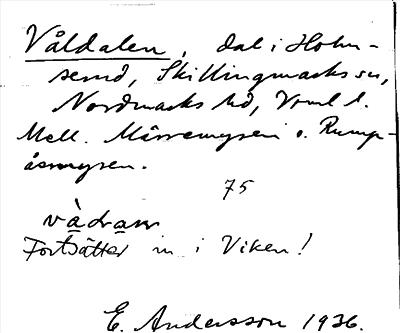 Våldalen, dal i Holm-
send, Skillingmarks sn,
Nordmarks hd, Vrml l.
Mell. Mårremysen o. Rump-
åsmysen.
75
vàdran
Fortsätter in i Viken!
E. Andersson 1936.